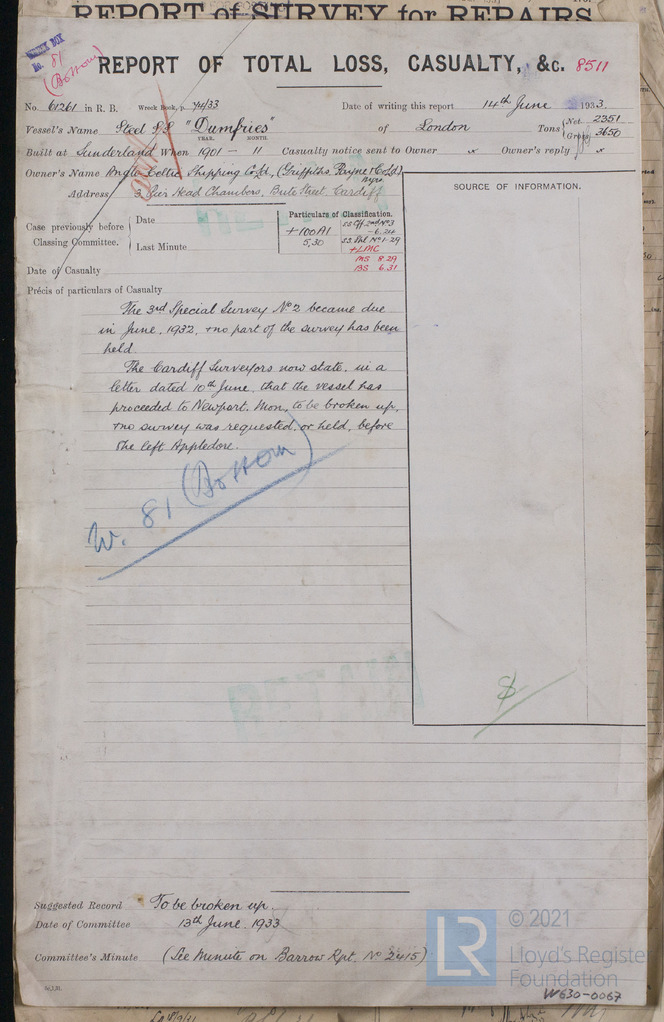 REPORT of SURVEY for REPAIRS
WRECK BOX
No. 81
(Bottom)
REPORT OF TOTAL LOSS, CASUALTY, &c. 8511
No. 61261 in R. B. Wreck Book, p. 74/33 Date of writing this report 14th June 1933.
Vessel's Name Steel S/S "Dumfries" of London Tons { Net 2351
Gross 3650
YEAR. MONTH.
Built at Sunderland When 1901 - 11 Casualty notice sent to Owner x Owner's reply x
Owner's Name Anglo Celtic Shipping Co Ld, (Griffiths, Payne & Co Ld)
Mgrs
Address 3, Pier Head Chambers, Bute Street, Cardiff
SOURCE OF INFORMATION.
Case previously before Classing Committee. { Date
Last Minute
Particulars of Classification.
+100A1
5,30
SS Cff. 2nd No 3
-6.24
SS No 1-29
+LMC
MS 8.29
BS 6.31
Date of Casualty
Précis of particulars of Casualty
The 3rd Special Survey No. 2 became due
in June, 1932, + no part of the survey has been
held.
The Cardiff Surveyors now state, in a
letter dated 10th June, that the vessel has
proceeded to Newport, Mon, to be broken up,
+ no survey was requested, or held, before
she left Appledore.
W. 81 (Bottom)
Suggested Record To be broken up.
Date of Committee 13th June 1933
Committee's Minute (See Minute on Barrow Rpt. No 2415)
LR
© 2021
Lloyd's Registe
Foundation
W630-0067